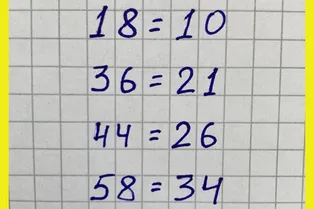 18=10
36=21
44=26
58=34